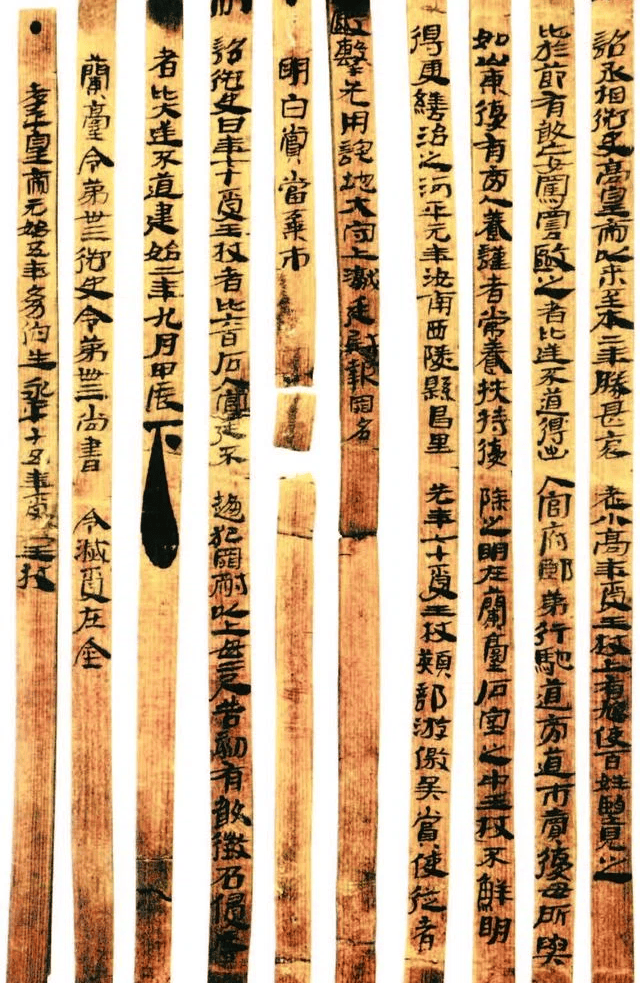 詔丞相御史高皇帝以來至本二年勝甚哀老小高年受王杖上有鳩使百姓望見之
比於節有敢妄罵詈毆之者比逆不道得出入官府郎第行馳道旁道市賣復毋所與
如山東復有旁人養謹者常養扶持復除之明在蘭臺石室之中王杖不鮮明
得更繕治之河平元年汝南西陵縣昌里先年七十受王杖熲部游徼吳賞使從者
毆擊先用詫地大守上讞廷尉報罪名
明白賞當棄市
詔御史曰年七十受王杖者比六百石入官廷不趨犯罪耐以上毋二尺告劾有敢徵召侵辱
者比大逆不道建始二年九月甲辰下
蘭臺令第卅三御史令第卌三尚書令滅受在金
孝平皇帝元始五年幼伯生永平十五年受王杖